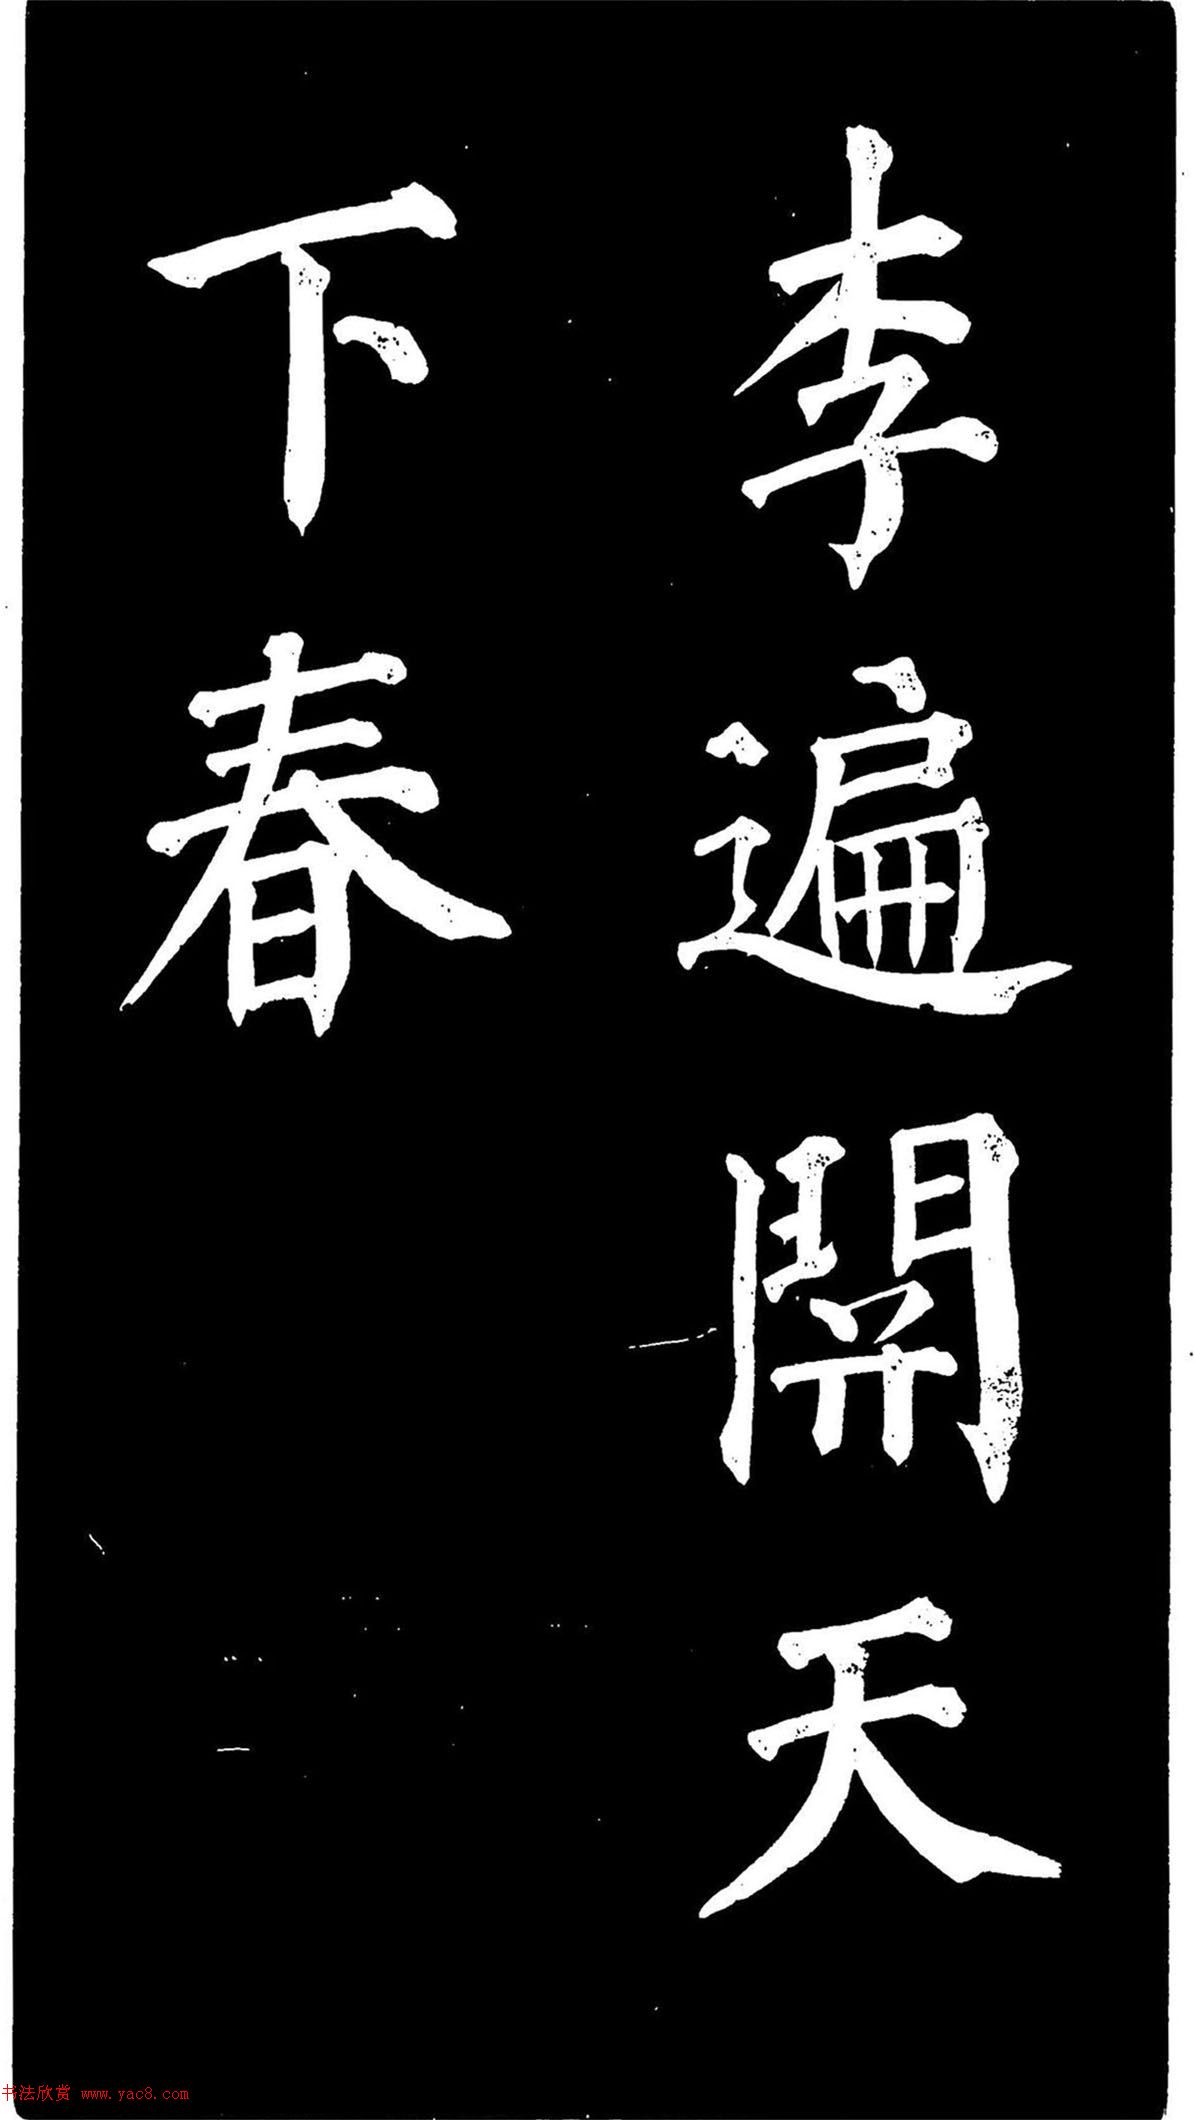 李遍開天
下春
书法欣赏 www.yac8.com